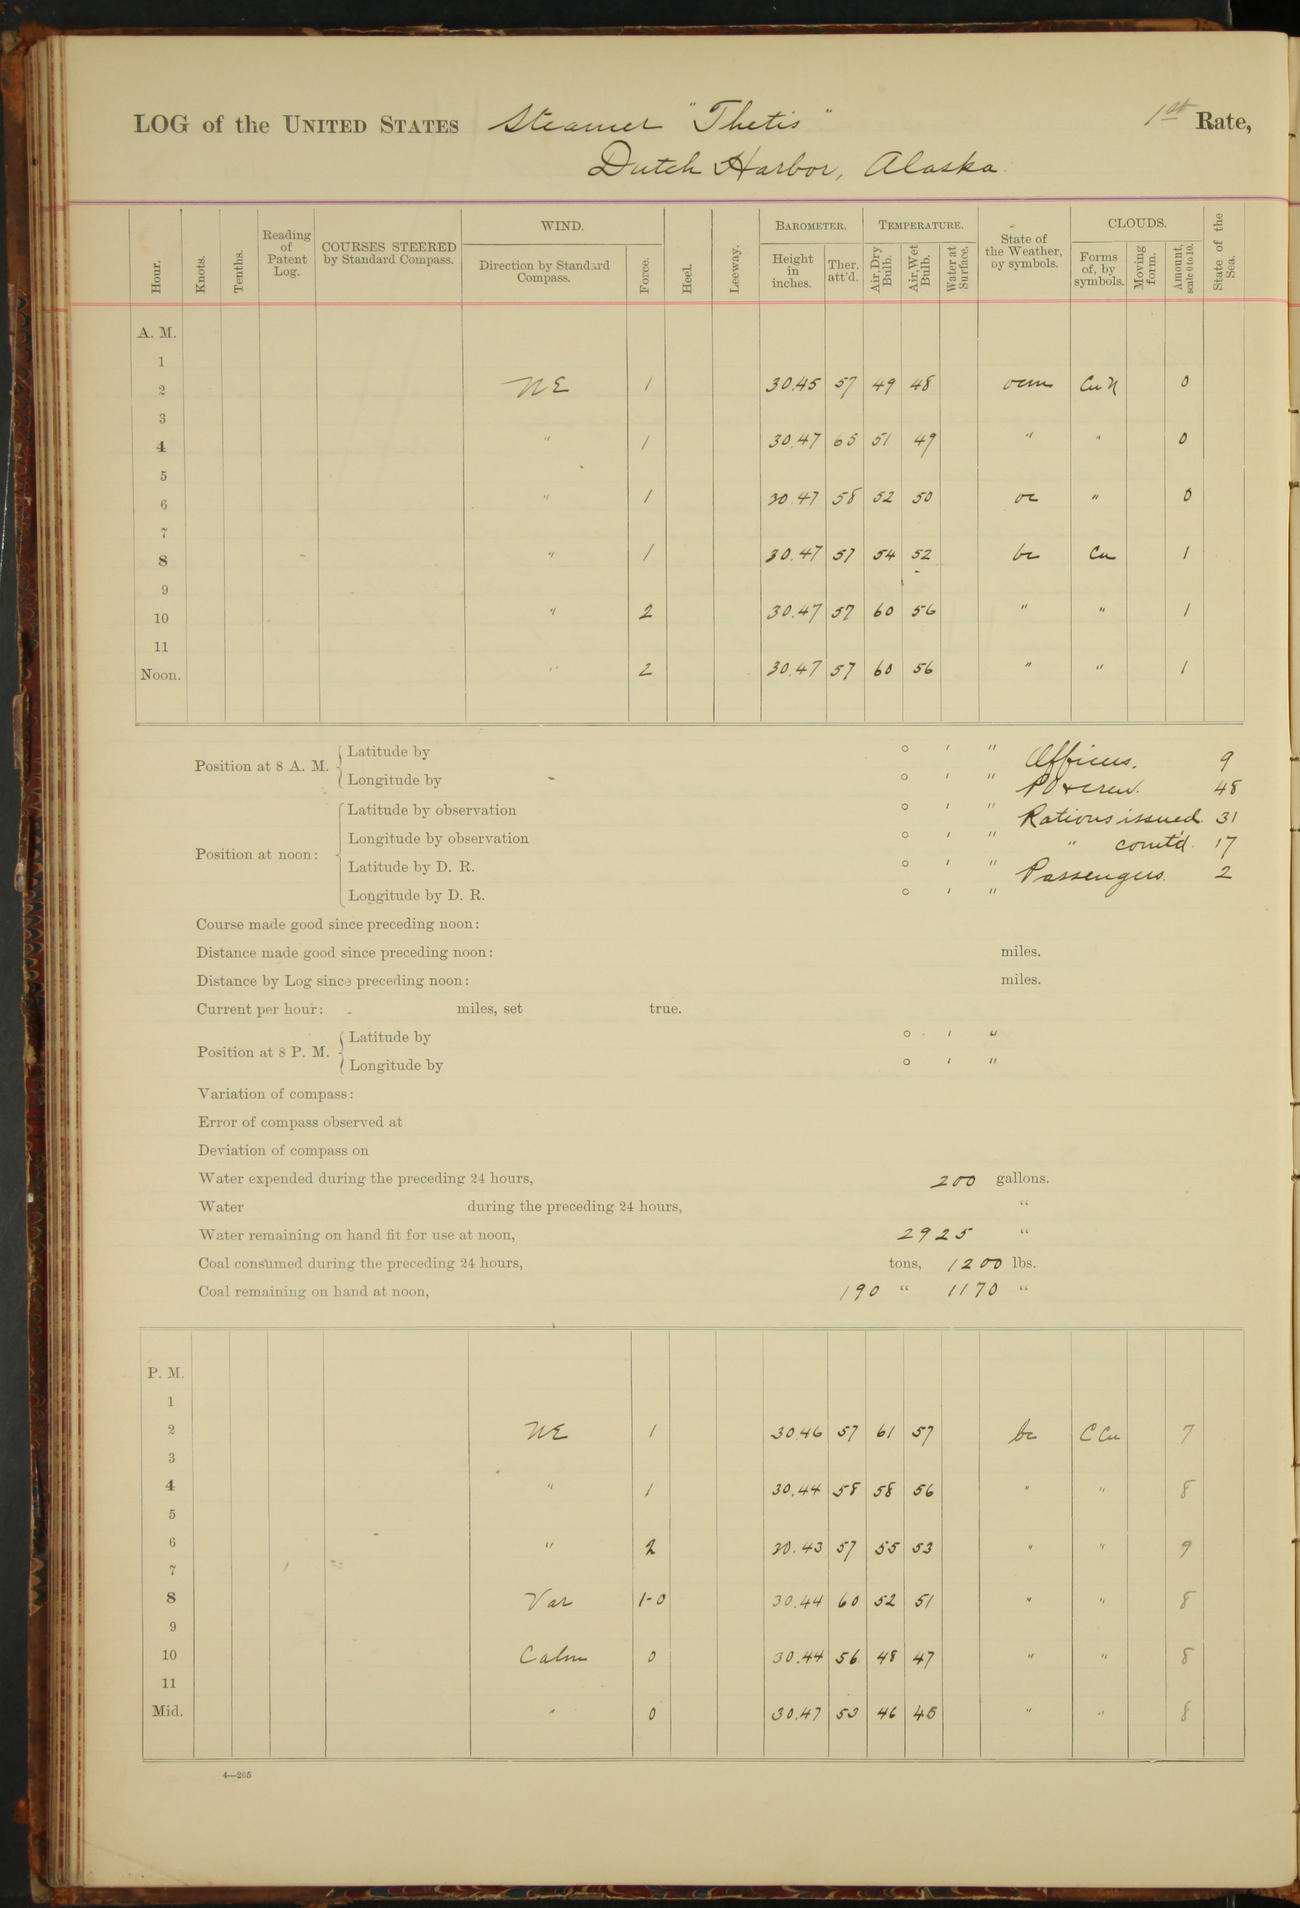 LOG of the UNITED STATES Steamer "Thetis" 1st Rate,
Dutch Harbor, Alaska
Hour. Knots. Tenths. Reading of Patent Log. COURSES STEERED by Standard Compass. WIND. Direction by Standard Compass. Force. Heel. Leeway. BAROMETER. Height in inches. Ther. att'd. TEMPERATURE. Air, Dry Bulb. Air, Wet Bulb. Water at Surface. State of the Weather, by symbols. CLOUDS. Forms of, by symbols. Moving form. Amount, scale 0 to 10. State of the Sea.
A. M.
1
2 NE 1 30.45 57 49 48 ocm Cu N 0
3
4 " 1 30.47 65 51 49 " " 0
5
6 " 1 30.47 58 52 50 oc " 0
7
8 " 1 30.47 57 54 52 bc Cu 1
9
10 " 2 30.47 57 60 56 " " 1
11
Noon. " 2 30.47 57 60 56 " " 1
Position at 8 A. M. Latitude by ° ' " Officers. 9
Longitude by ° ' " P O & crew. 48
Position at noon: Latitude by observation ° ' " Rations issued 31
Longitude by observation ° ' " " comt'd. 17
Latitude by D. R. ° ' " Passengers. 2
Longitude by D. R. ° ' "
Course made good since preceding noon:
Distance made good since preceding noon: miles.
Distance by Log since preceding noon: miles.
Current per hour: miles, set true.
Position at 8 P. M. Latitude by ° ' "
Longitude by ° ' "
Variation of compass:
Error of compass observed at
Deviation of compass on
Water expended during the preceding 24 hours, 200 gallons.
Water during the preceding 24 hours, "
Water remaining on hand fit for use at noon, 2925 "
Coal consumed during the preceding 24 hours, tons, 1200 lbs.
Coal remaining on hand at noon, 190 " 1170 "
P. M.
1
2 NE 1 30.46 57 61 57 bc C Cu 7
3
4 " 1 30.44 58 58 56 " " 8
5
6 " 2 30.43 57 55 53 " " 9
7
8 Var 1-0 30.44 60 52 51 " " 8
9
10 Calm 0 30.44 56 48 47 " " 8
11
Mid. " 0 30.47 53 46 45 " " 8
4—205